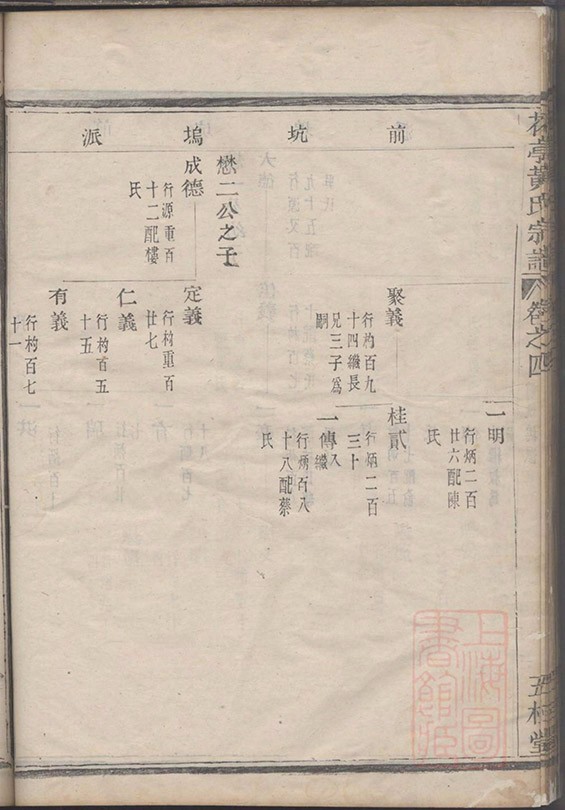 亭黃氏宗譜 卷之四
前坑塢派
一明
行炳二百
廿六配陳
氏
聚義
行杓百九
十四繼長
兄三子爲
嗣
桂貳
行炳二百
三十
一傳入
繼
行炳百八
十八配蔡
氏
懋二公之子
成德
行源重百
十二配樓
氏
定義
行杓重百
廿七
仁義
行杓百五
十五
有義
行杓百七
十一
堂
上海圖
書館藏